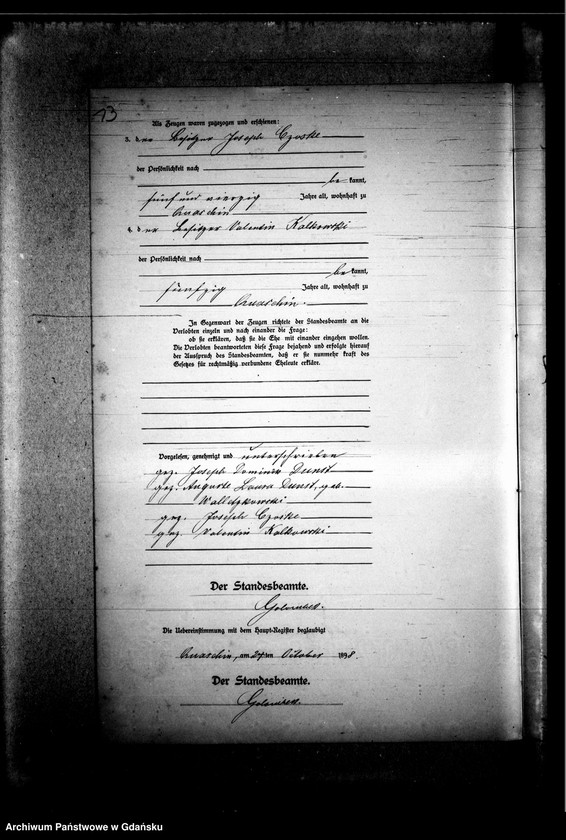 13
Als Zeugen waren zugezogen und erschienen:
3. der Besitzer Joseph Czoske
der Persönlichkeit nach
bekannt,
fünf und vierzig Jahre alt, wohnhaft zu
Quaschin
4. der Besitzer Valentin Kalkowski
der Persönlichkeit nach
bekannt,
fünfzig Jahre alt, wohnhaft zu
Quaschin.
In Gegenwart der Zeugen richtete der Standesbeamte an die
Verlobten einzeln und nach einander die Frage:
ob sie erklären, daß sie die Ehe mit einander eingehen wollen.
Die Verlobten beantworteten diese Frage bejahend und erfolgte hierauf
der Ausspruch des Standesbeamten, daß er sie nunmehr kraft des
Gesetzes für rechtmäßig verbundene Eheleute erkläre.
Vorgelesen, genehmigt und unterschrieben
gez. Joseph Dominik Dunst
gez. Auguste Laura Dunst, geb.
gez. Joseph Czoske
gez. Valentin Kalkowski
Der Standesbeamte.
Die Uebereinstimmung mit dem Haupt-Register beglaubigt
Quaschin, am ten October 1898.
Der Standesbeamte.
Archiwum Państwowe w Gdańsku